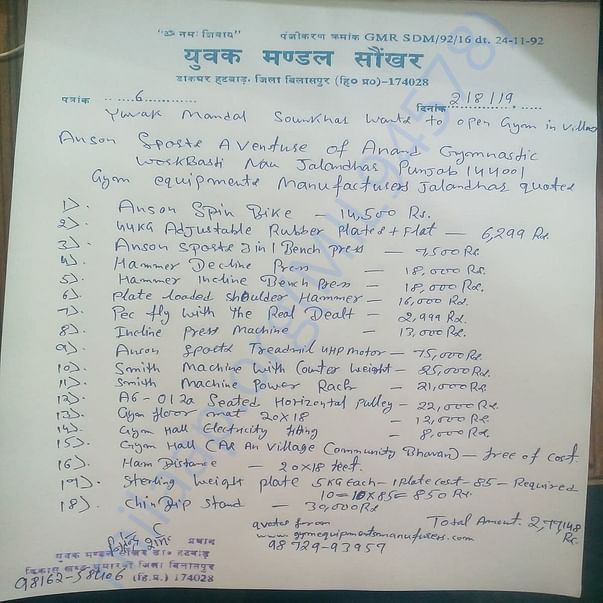 "ॐ नमः शिवाय" पंजीकरण क्रमांक GMR SDM/92/16 dt. 24-11-92
युवक मण्डल सौंखर
डाकघर हटवाड़, जिला बिलासपुर (हि० प्र०)-174028
पत्रांक ....6............ दिनांक 2/8/19
Yuvak Mandal Sounkhar wants to open Gym in Village
Anson Sports A Venture of Anand Gymnastic
Works Basti Nau Jalandhar Punjab 144001
Gym equipments Manufacturers Jalandhar quoted
1). Anson Spin Bike — 14,500 Rs.
2). 44KG Adjustable Rubber Plates + Flat — 6,299 Rs.
3). Anson Sports 3 in 1 Bench Press — 7,500 Rs
4). Hammer Decline Press — 18,000 Rs.
5). Hammer Incline Bench Press — 18,000 Rs.
6). Plate loaded shoulder Hammer — 16,000 Rs.
7). Pec fly with The Real Dealt — 2,999 Rs.
8). Incline Press Machine — 13,000 Rs.
9). Anson Sports Treadmil 4HP motor — 75,000 Rs.
10). Smith Machine with Counter weight — 25,000 Rs.
11). Smith Machine Power Rack — 21,000 Rs.
12). A6-012a Seated Horizontal Pulley — 22,000 Rs.
13). Gym floor mat 20x18 — 12,000 Rs.
14). Gym Hall Electricity fitting — 8,000 Rs.
15). Gym Hall (As An Village Community Bhavan) — free of cost.
16). Ham Distance — 20x18 feet.
17). Sterling weight plate 5KG each - 1 Plate cost - 85 - Required
10 = 10x85 = 850 Rs.
18). Chin Dip Stand — 30,000 Rs
Total Amount 2,77,148 Rs.
quotes from
www.gymequipmentsmanufusers.com
98729-93957
प्रधान
युवक मण्डल सौंखर डा० हटवाड़
विकास खण्ड घुमारवीं जिला बिलासपुर
(हि.प्र.) 174028
98162-58406